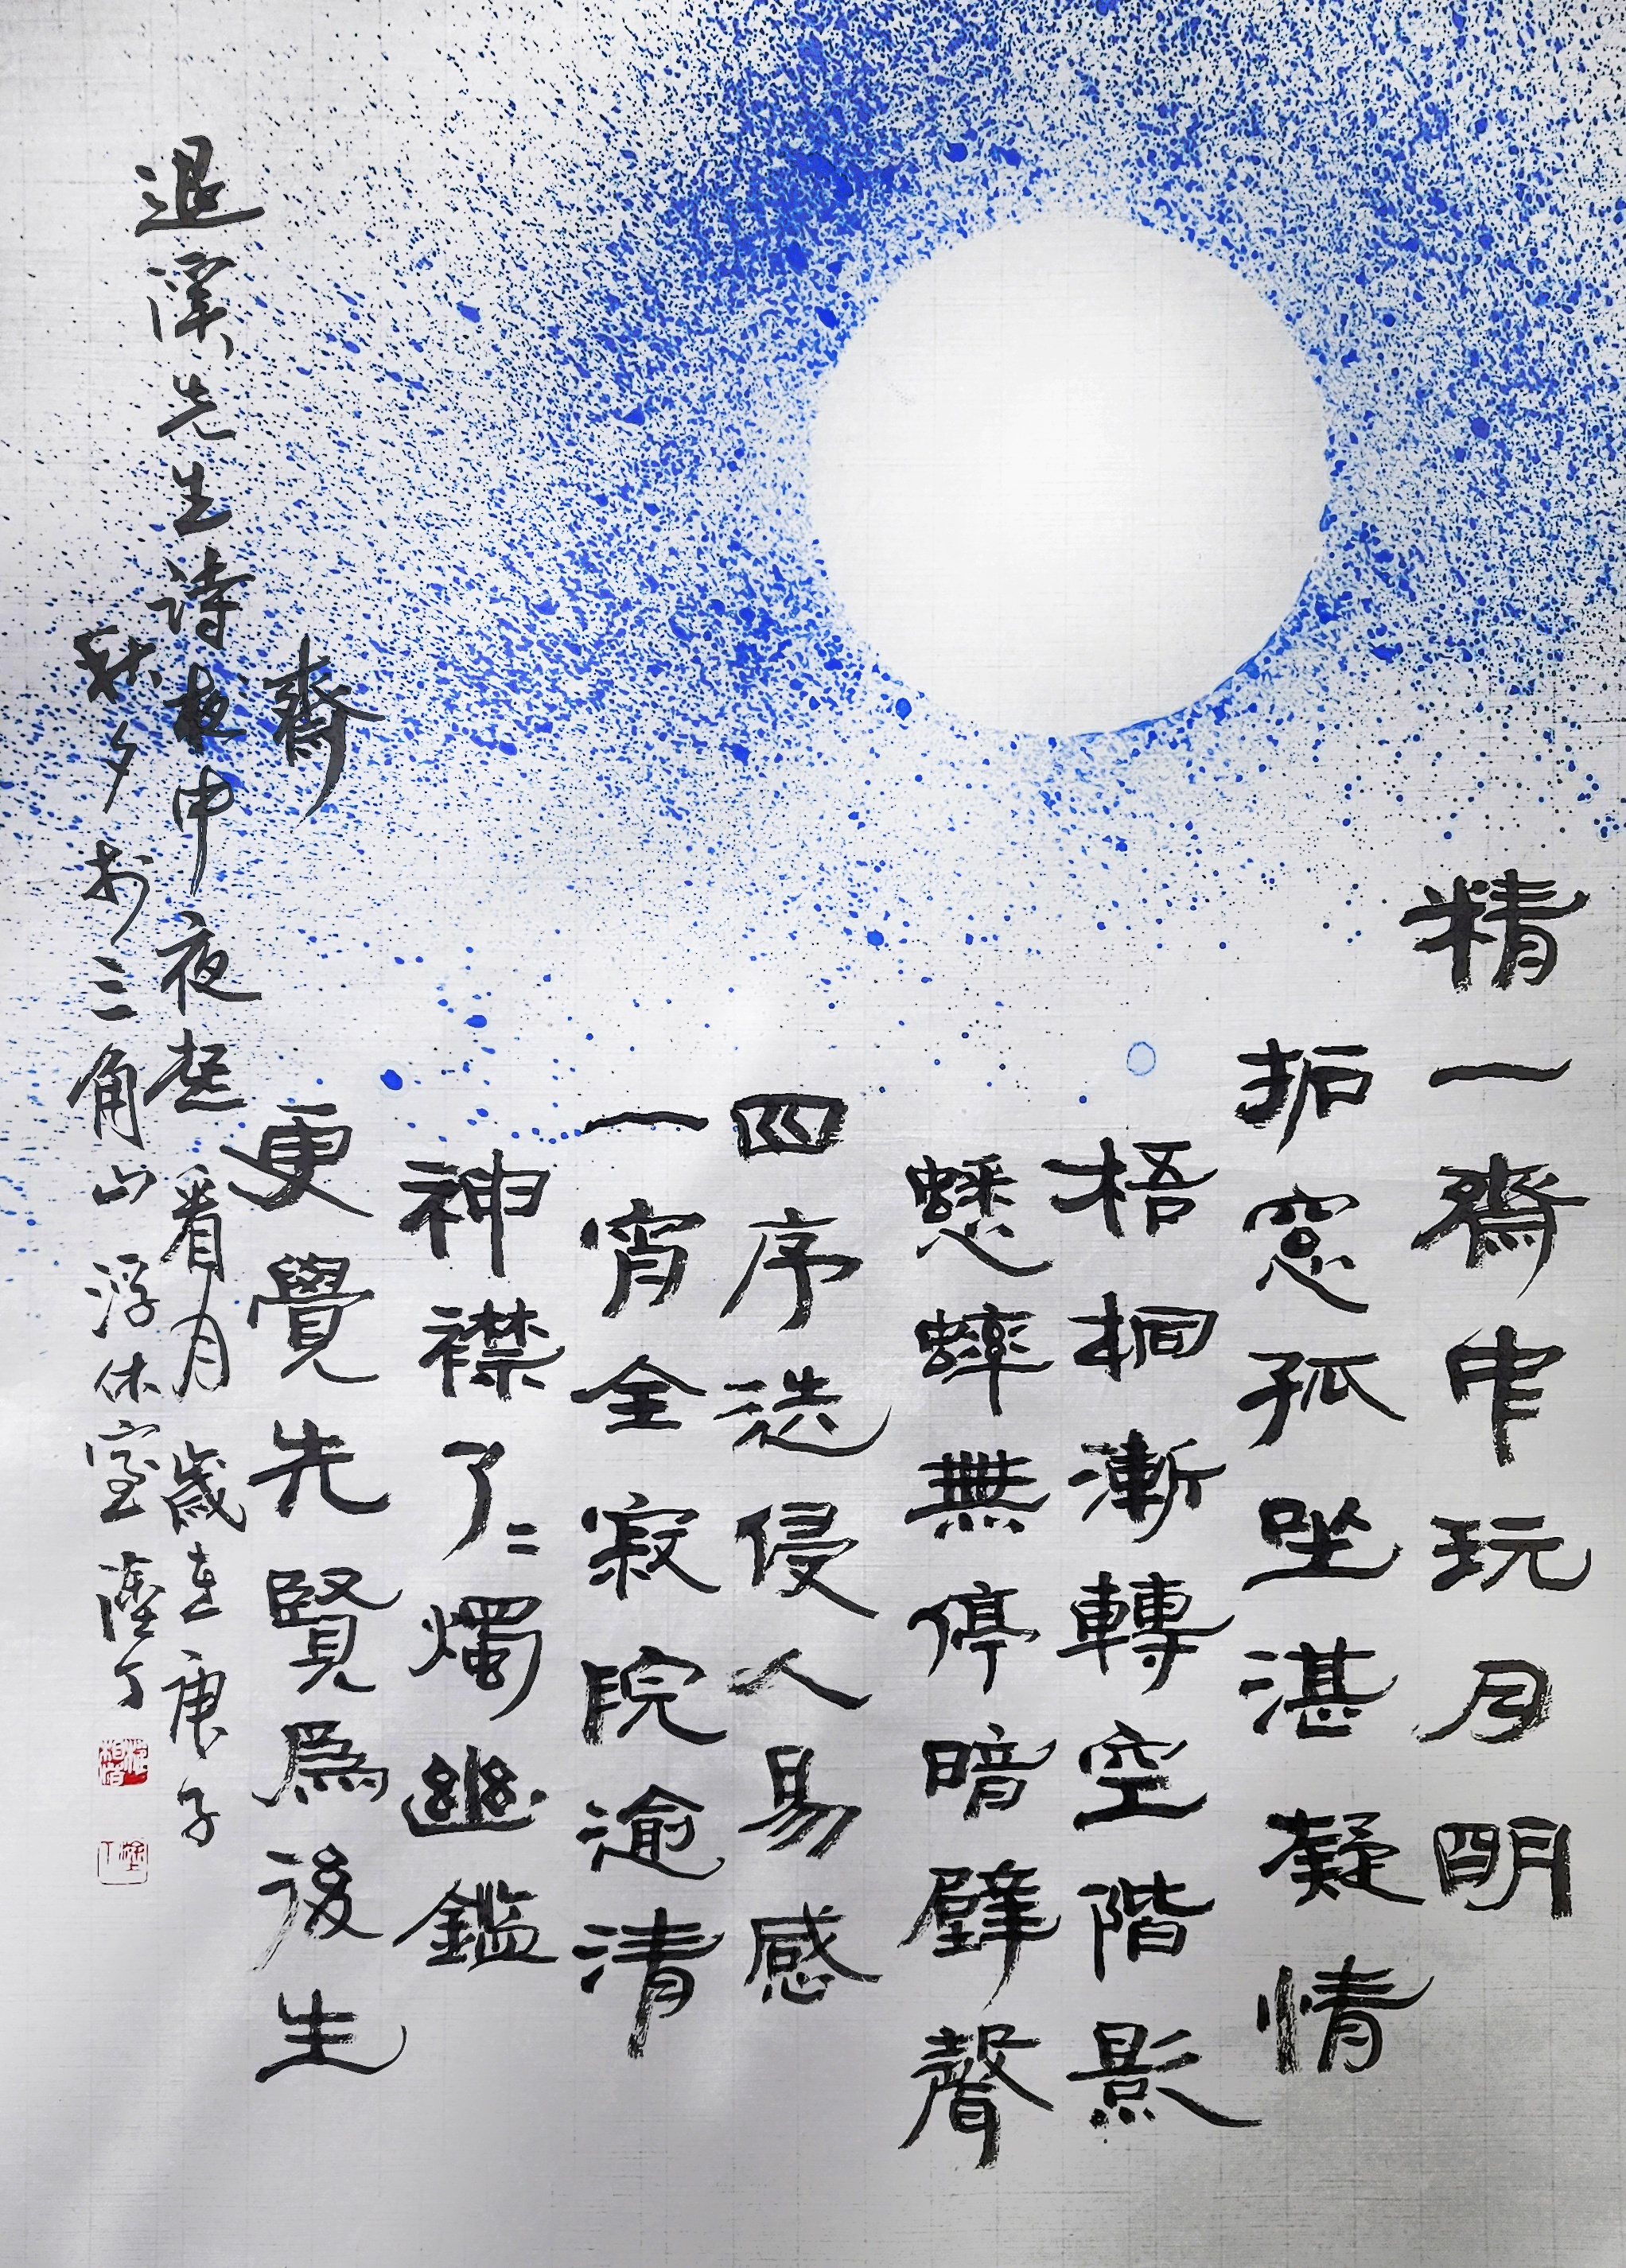 精一齋中玩月明
拓窓孤坐湛凝情
梧桐漸轉空階影
蟋蟀無停暗壁聲
四序迭侵人易感
一宵全寂院逾清
神襟了〻燭幽鑑
更覺先賢爲後生
齋
退溪先生詩中夜起看月 歲在庚子
秋夕於三角山 浮休室